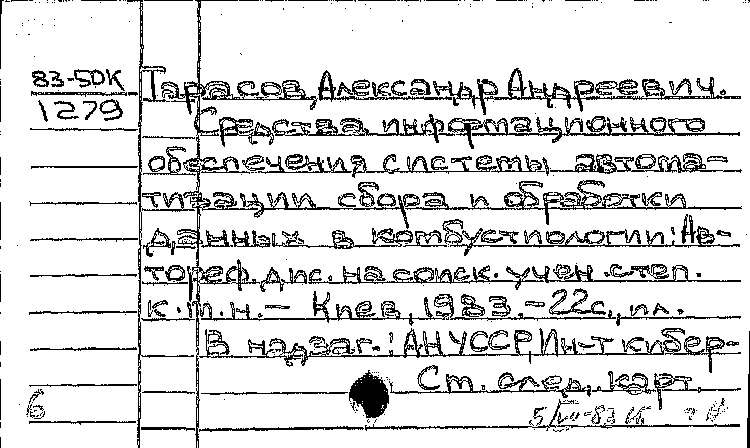 83-5ДК
1279
Тарасов, Александр Андреевич.
Средства информационного
обеспечения системы автома-
тизации сбора и обработки
данных в комбустиологии: Ав-
тореф. дис. на соиск. учен. степ.
к.т.н. – Киев, 1983. – 22с., ил.
В надзаг.: АН УССР, Ин-т кибер-
Ст. след. карт.
6
5/VIII-83